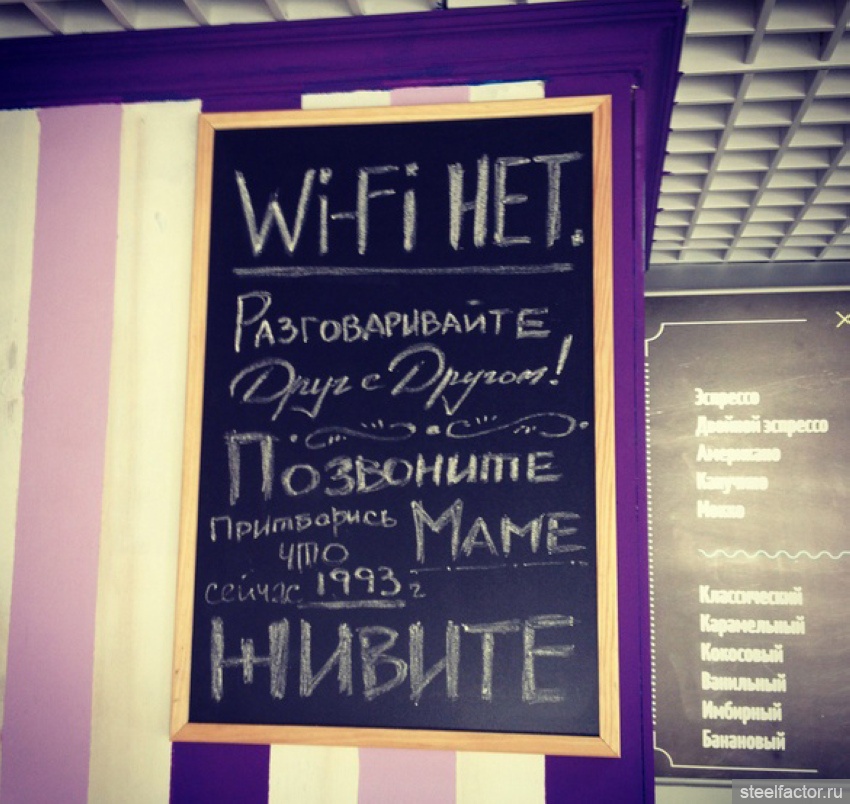 Wi-Fi НЕТ.
РАЗГОВАРИВАЙТЕ
Друг с Другом!
ПОЗВОНИТЕ
МАМЕ
Притворись
что
сейчас 1993 г
ЖИВИТЕ
Эспрессо
Двойной эспрессо
Американо
Капучино
Мокко
Классический
Карамельный
Кокосовый
Ванильный
Имбирный
Банановый
steelfactor.ru